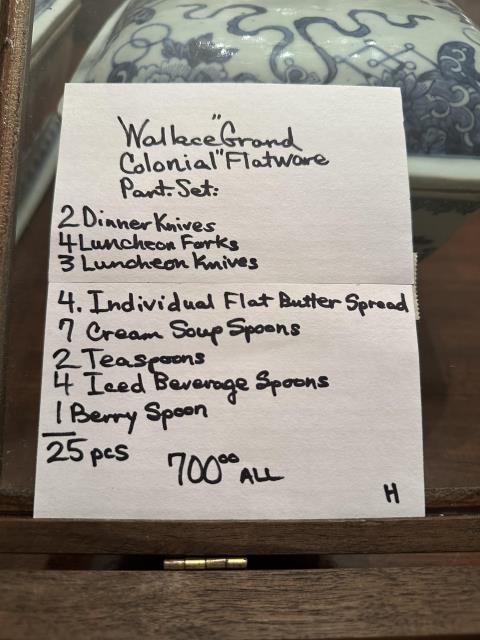 Wallace "Grand
Colonial" Flatware
Part. Set:
2 Dinner Knives
4 Luncheon Forks
3 Luncheon Knives
4. Individual Flat Butter Spread
7 Cream Soup Spoons
2 Teaspoons
4 Iced Beverage Spoons
1 Berry Spoon
25 pcs
700⁰⁰ ALL
H